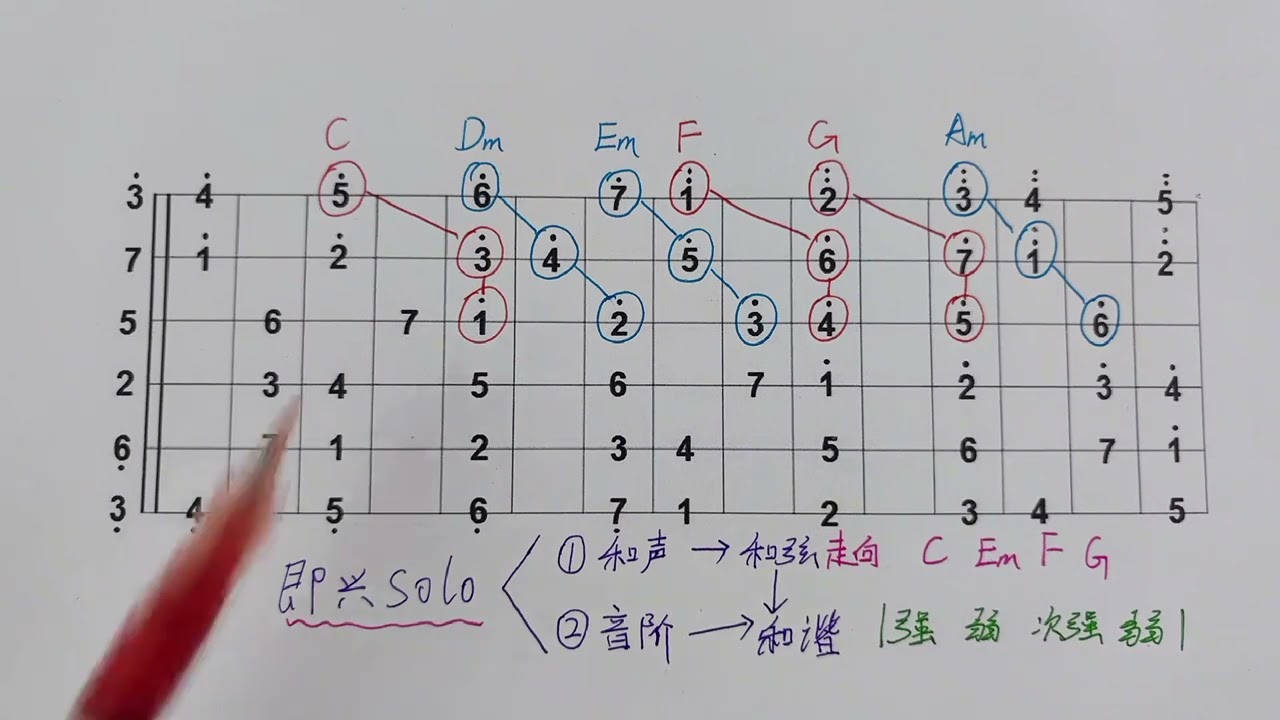 C Dm Em F G Am
3̇ 4̇ 5̇ 6̇ 7̇ 1̈ 2̈ 3̈ 4̈ 5̈
7 1̇ 2̇ 3̇ 4̇ 5̇ 6̇ 7̇ 1̈ 2̈
5 6 7 1̇ 2̇ 3̇ 4̇ 5̇ 6̇
2 3 4 5 6 7 1̇ 2̇ 3̇ 4̇
6̣ 1 2 3 4 5 6 7 1̇
3̣ 5̣ 6̣ 7̣ 1 2 3 4 5
即兴Solo
① 和声 → 和弦走向 C Em F G
② 音阶 → 和谐 |强 弱 次强 弱|